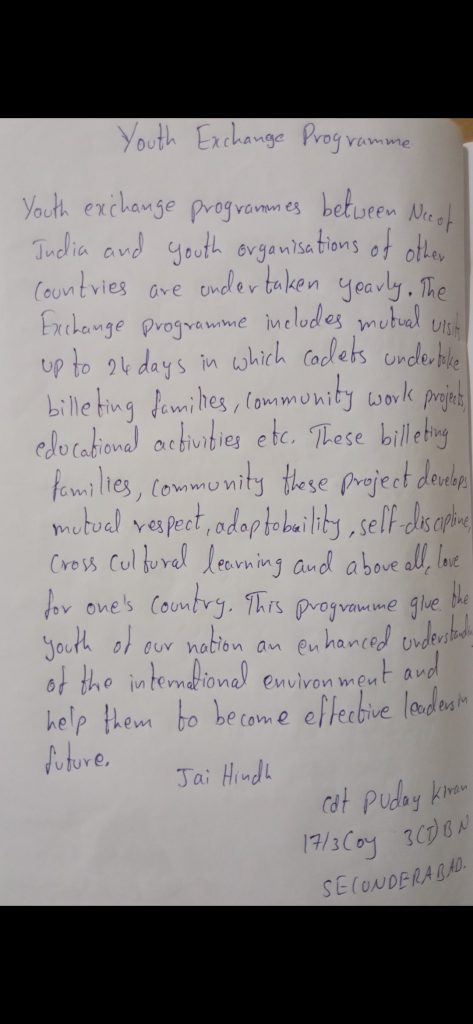 Youth Exchange Programme
Youth exchange programmes between Ncc of
India and youth organisations of other
Countries are undertaken yearly. The
Exchange programme includes mutual visit
up to 24 days in which cadets undertake
billeting families, community work projects,
educational activities etc. These billeting
families, community these project develops
mutual respect, adaptobaility, self-discipline,
Cross Cultural learning and above all, love
for one's Country. This programme give the
youth of our nation an enhanced understanding
of the international environment and
help them to become effective leaders in
future.
Jai Hindh
Cdt P Uday Kiran
17/3 Coy 3(T) BN
SECONDERABAD.